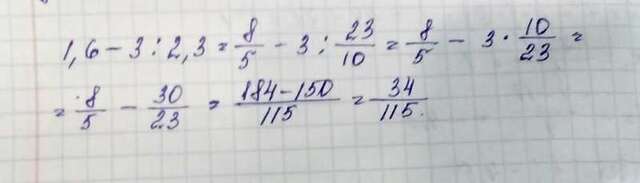 1,6 - 3 : 2,3 = 8/5 - 3 : 23/10 = 8/5 - 3 · 10/23 =
= 8/5 - 30/23 = (184 - 150)/115 = 34/115.